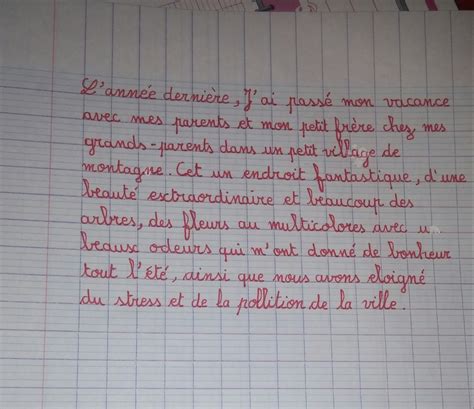 L'année dernière, J'ai passé mon vacance
avec mes parents et mon petit frère chez mes
grands-parents dans un petit village de
montagne. Cet un endroit fantastique, d'une
beauté esctraordinaire et beaucoup des
arbres, des fleurs au multicolores avec u
beausc odeurs qui m'ont donné de bonheur
tout l'été, ainsi que nous avons eloigné
du stress et de la pollition de la ville.